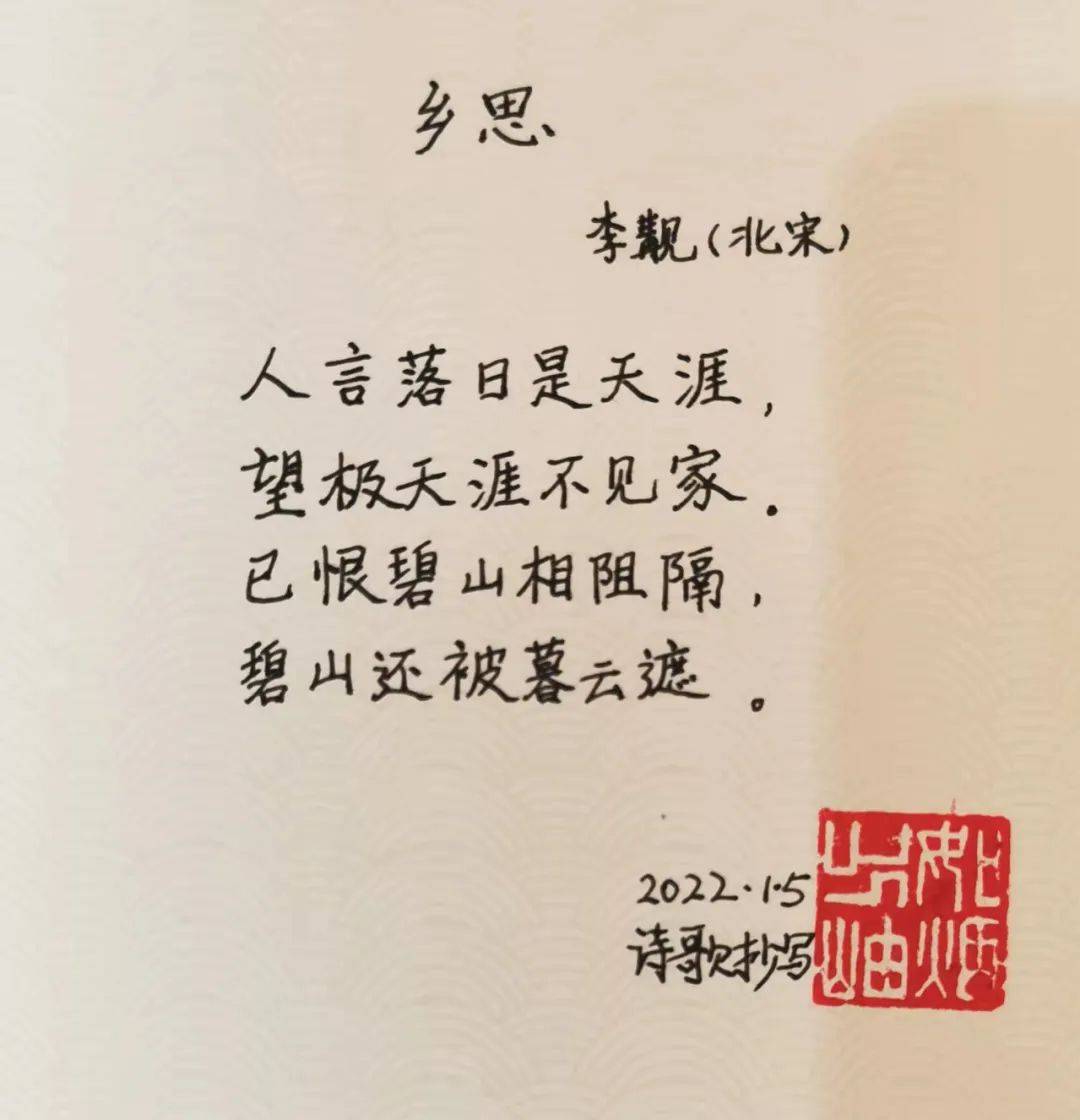 乡思
李觏（北宋）
人言落日是天涯，
望极天涯不见家。
已恨碧山相阻隔，
碧山还被暮云遮。
2022.1.5
诗歌抄写